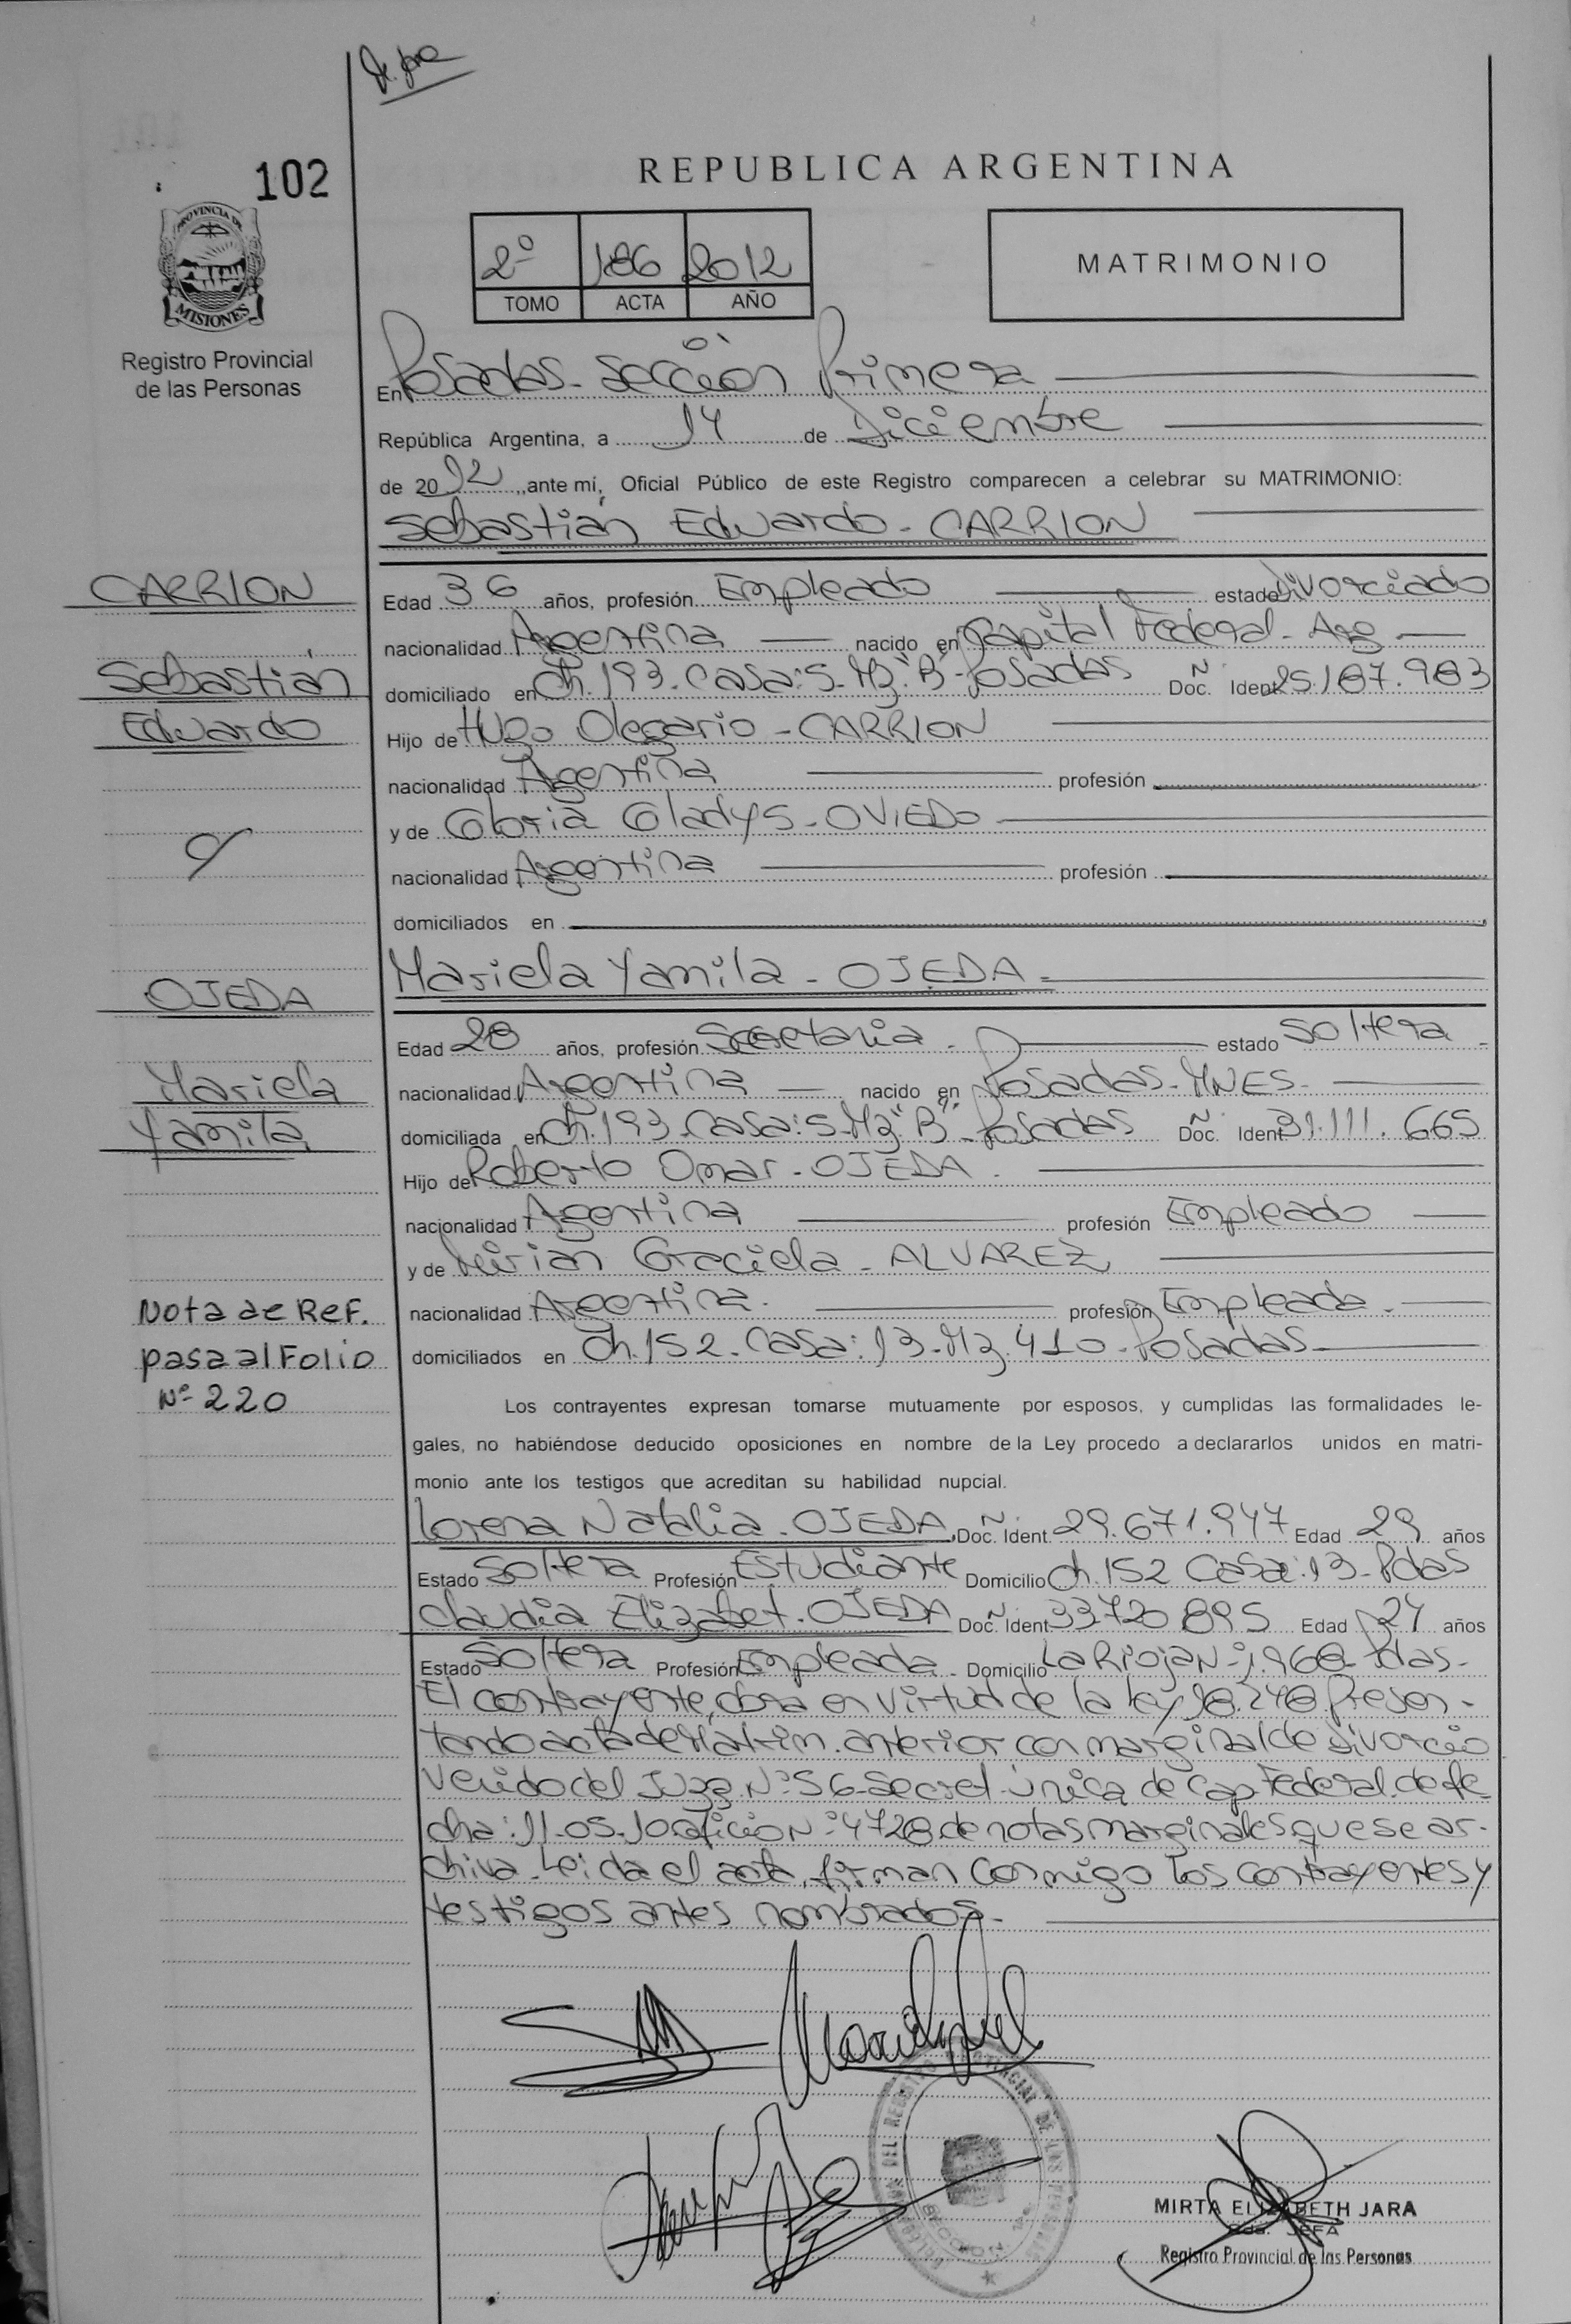 102
REPUBLICA ARGENTINA
PROVINCIA DE
MISIONES
Registro Provincial
de las Personas
2º 186 2012
TOMO ACTA AÑO
MATRIMONIO
En Posadas - Sección Primera
República Argentina, a 14 de Diciembre
de 2012, ante mí, Oficial Público de este Registro comparecen a celebrar su MATRIMONIO:
Sebastián Eduardo - CARRION
CARRION
Sebastián
Eduardo
Edad 36 años, profesión Empleado estado Divorciado
nacionalidad Argentina nacido en Capital Federal - Arg
domiciliado en Ch. 193 - Casa: 5 - Mz "B" - Posadas Doc. Ident 25.187.983
Hijo de Hugo Olegario - CARRION
nacionalidad Argentina profesión
y de Gloria Gladys - OVIEDO
nacionalidad Argentina profesión
domiciliados en
Mariela Yamila - OJEDA
OJEDA
Mariela
Yamila
Edad 28 años, profesión Secretaria - estado Soltera
nacionalidad Argentina nacido en Posadas - MNES -
domiciliada en Ch. 193 - Casa: 5 - Mz "B" - Posadas Doc. Ident 31.111.665
Hijo de Roberto Omar - OJEDA
nacionalidad Argentina profesión Empleado
y de Mirian Graciela - ALVAREZ
nacionalidad Argentina. profesión Empleada -
domiciliados en Ch. 152 - Casa: 13 - Mz. 410 - Posadas
Nota de Ref.
pasa al Folio
Nº 220
Los contrayentes expresan tomarse mutuamente por esposos, y cumplidas las formalidades le-
gales, no habiéndose deducido oposiciones en nombre de la Ley procedo a declararlos unidos en matri-
monio ante los testigos que acreditan su habilidad nupcial.
Lorena Natalia - OJEDA Doc. Ident 29.671.947 Edad 29 años
Estado Soltera Profesión Estudiante Domicilio Ch. 152 Casa: 13 - Pdas
Claudia Elizabet - OJEDA Doc. Ident 33720895 Edad 24 años
Estado Soltera Profesión Empleada - Domicilio La Rioja Nº 1.968 - Pdas -
El contrayente, obra en virtud de la Ley 18.248 Presen-
tando acta de Matrim. anterior con marginal de divorcio
venido del Juzg. Nº 56 - Secret. Única de Cap. Federal. de fe
cha: 11-05-10 oficio Nº 4728 de notas marginales que se ar-
chiva. Leída el acta, firman conmigo los contrayentes y
testigos antes nombrados -
MIRTA ELIZABETH JARA
JEFA
Registro Provincial de las Personas